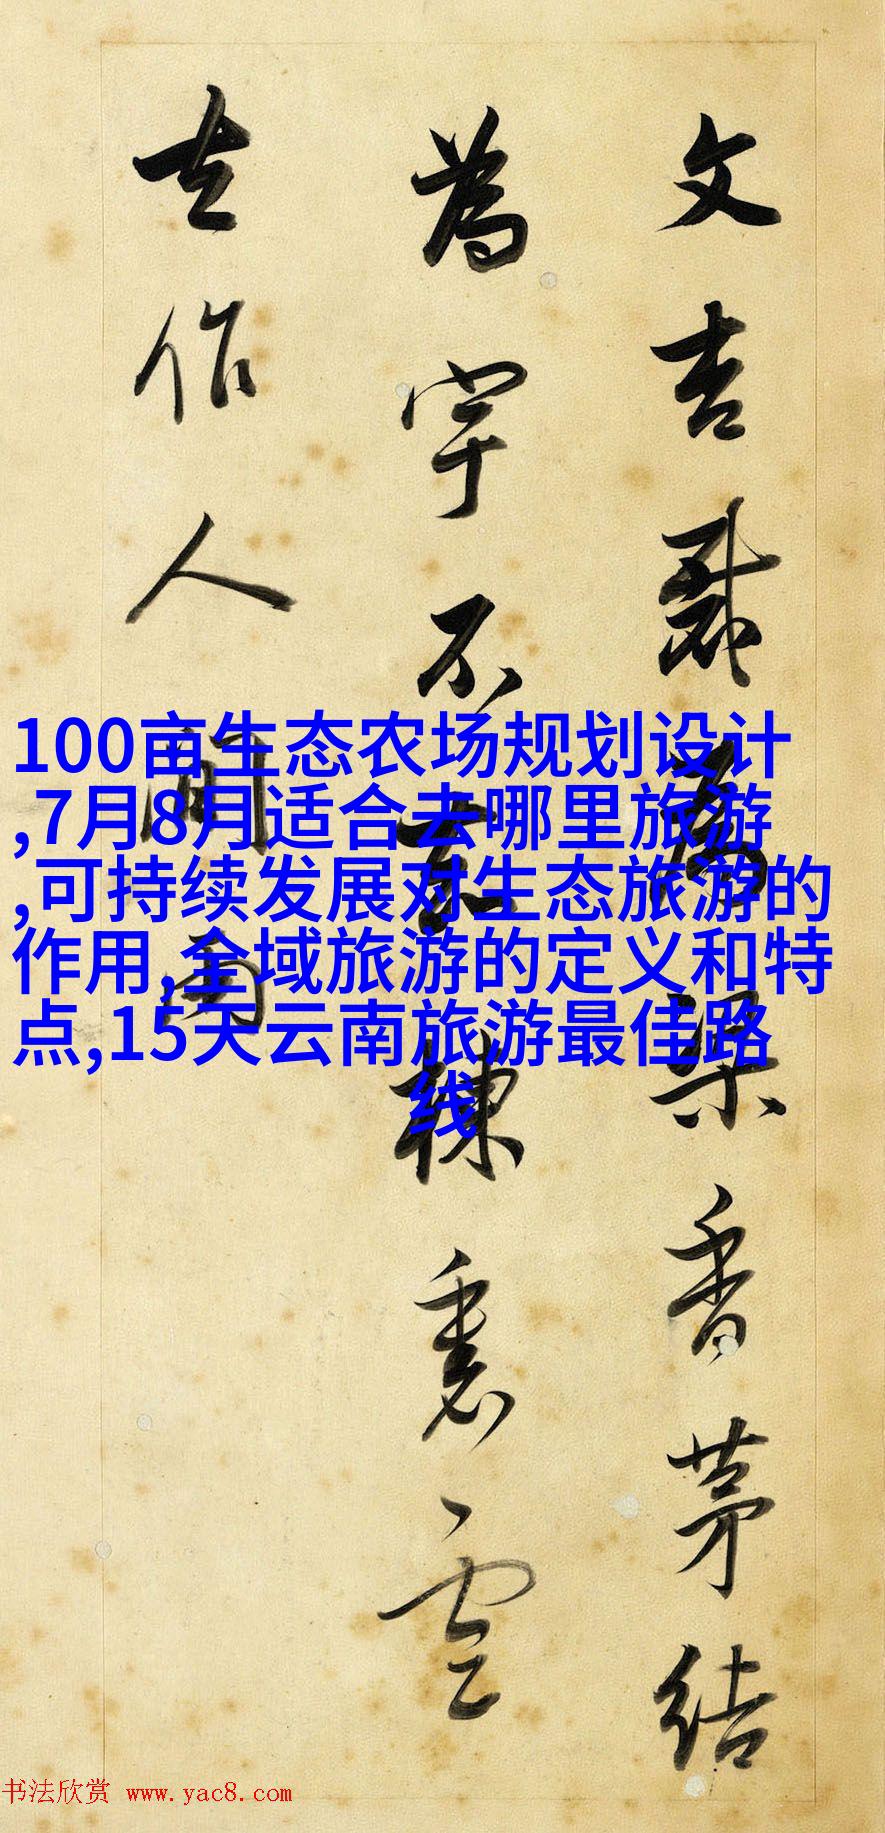 文杏裁為梁香茅結
為宇不知棟裏雲
去作人間雨
100亩生态农场规划设计
,7月8月适合去哪里旅游
,可持续发展对生态旅游的
作用,全域旅游的定义和特
点,15天云南旅游最佳路
线
书法欣赏 www.yac8.com